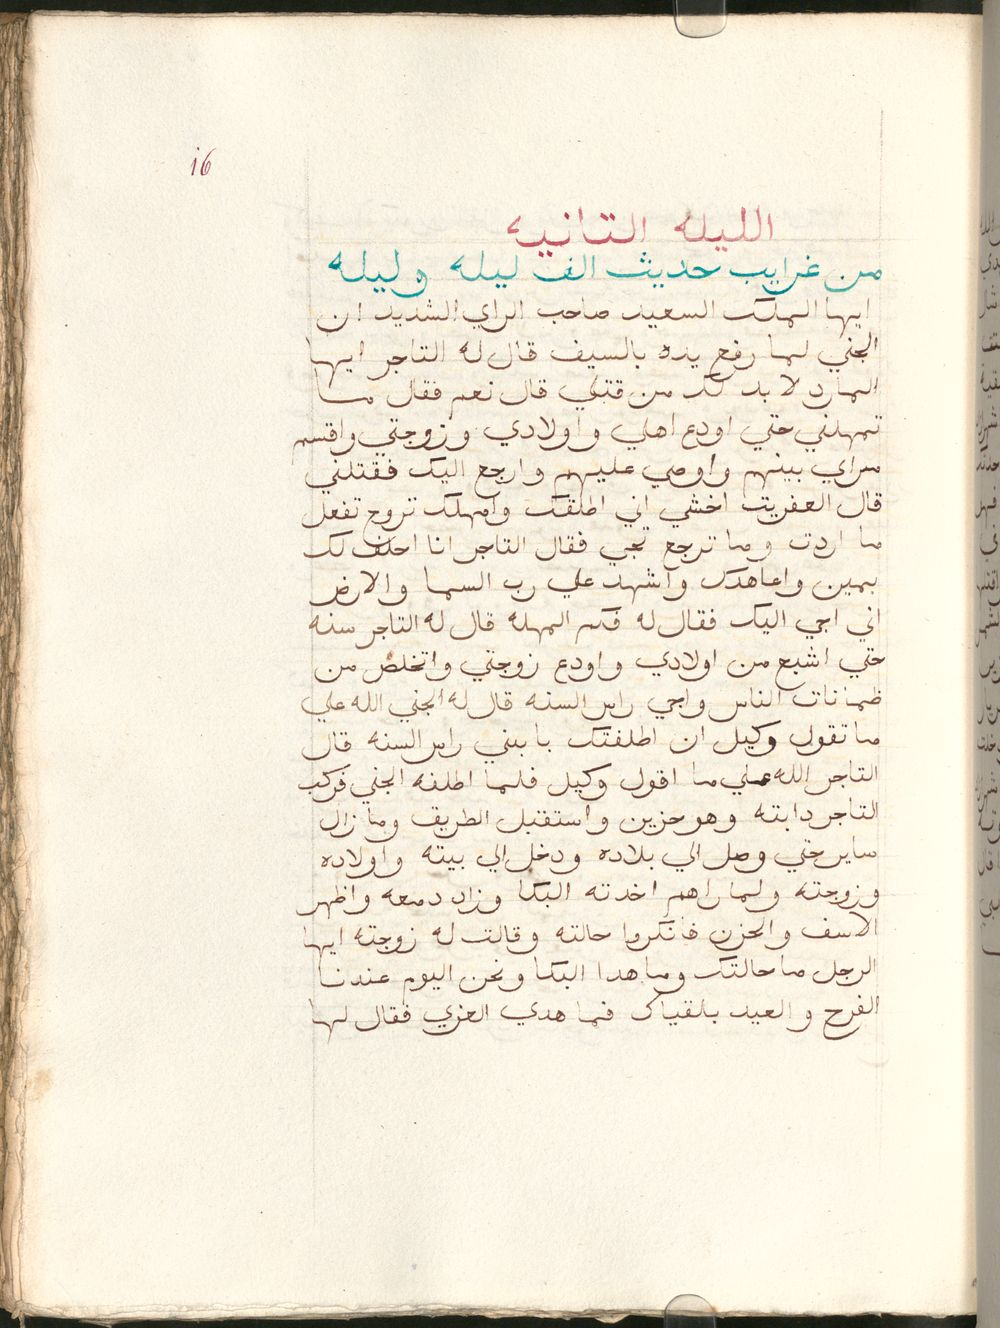 16
الليله التانيه
من غرايب حديث الف ليله وليله
ايها الملك السعيد صاحب الراي الشديد ان
الجني لما رفع يده بالسيف قال له التاجر ايها
المارد لا بد لك من قتلي قال نعم فقال ما
تمهلني حتي اودع اهلي واولادي وزوجتي واقسم
مراي بينهم واوصي عليهم وارجع اليك فقتلني
قال العفريت اخشي اني اطلقك وامهلك تروح تفعل
ما اردت وما ترجع تجي فقال التاجر انا احلف لك
بمين واعاهدك واشهد علي رب السما والارض
اني اجي اليك فقال له فكم المهله قال له التاجر سنه
حتي اشبع من اولادي واودع زوجتي واتخلص من
ضمانات الناس واجي راس السنه قال له الجني الله علي
ما تقول وكيل ان اطلقتك با بتني راس السنه قال
التاجر الله علي ما اقول وكيل فلما اطلقه الجني فركب
التاجر دابته وهو حزين واستقبل الطريق وما زال
ساير حتي وصل الي بلاده ودخل الي بيته واولاده
وزوجته ولما راهم اخدته البكا وزاد دمعه واظهر
الاسف والحزن فانكروا حالته وقالت له زوجته ايها
الرجل ما حالتك وما هدا البكا ونحن اليوم عندنا
الفرح والعيد بلقياك فما هدي العزي فقال لها